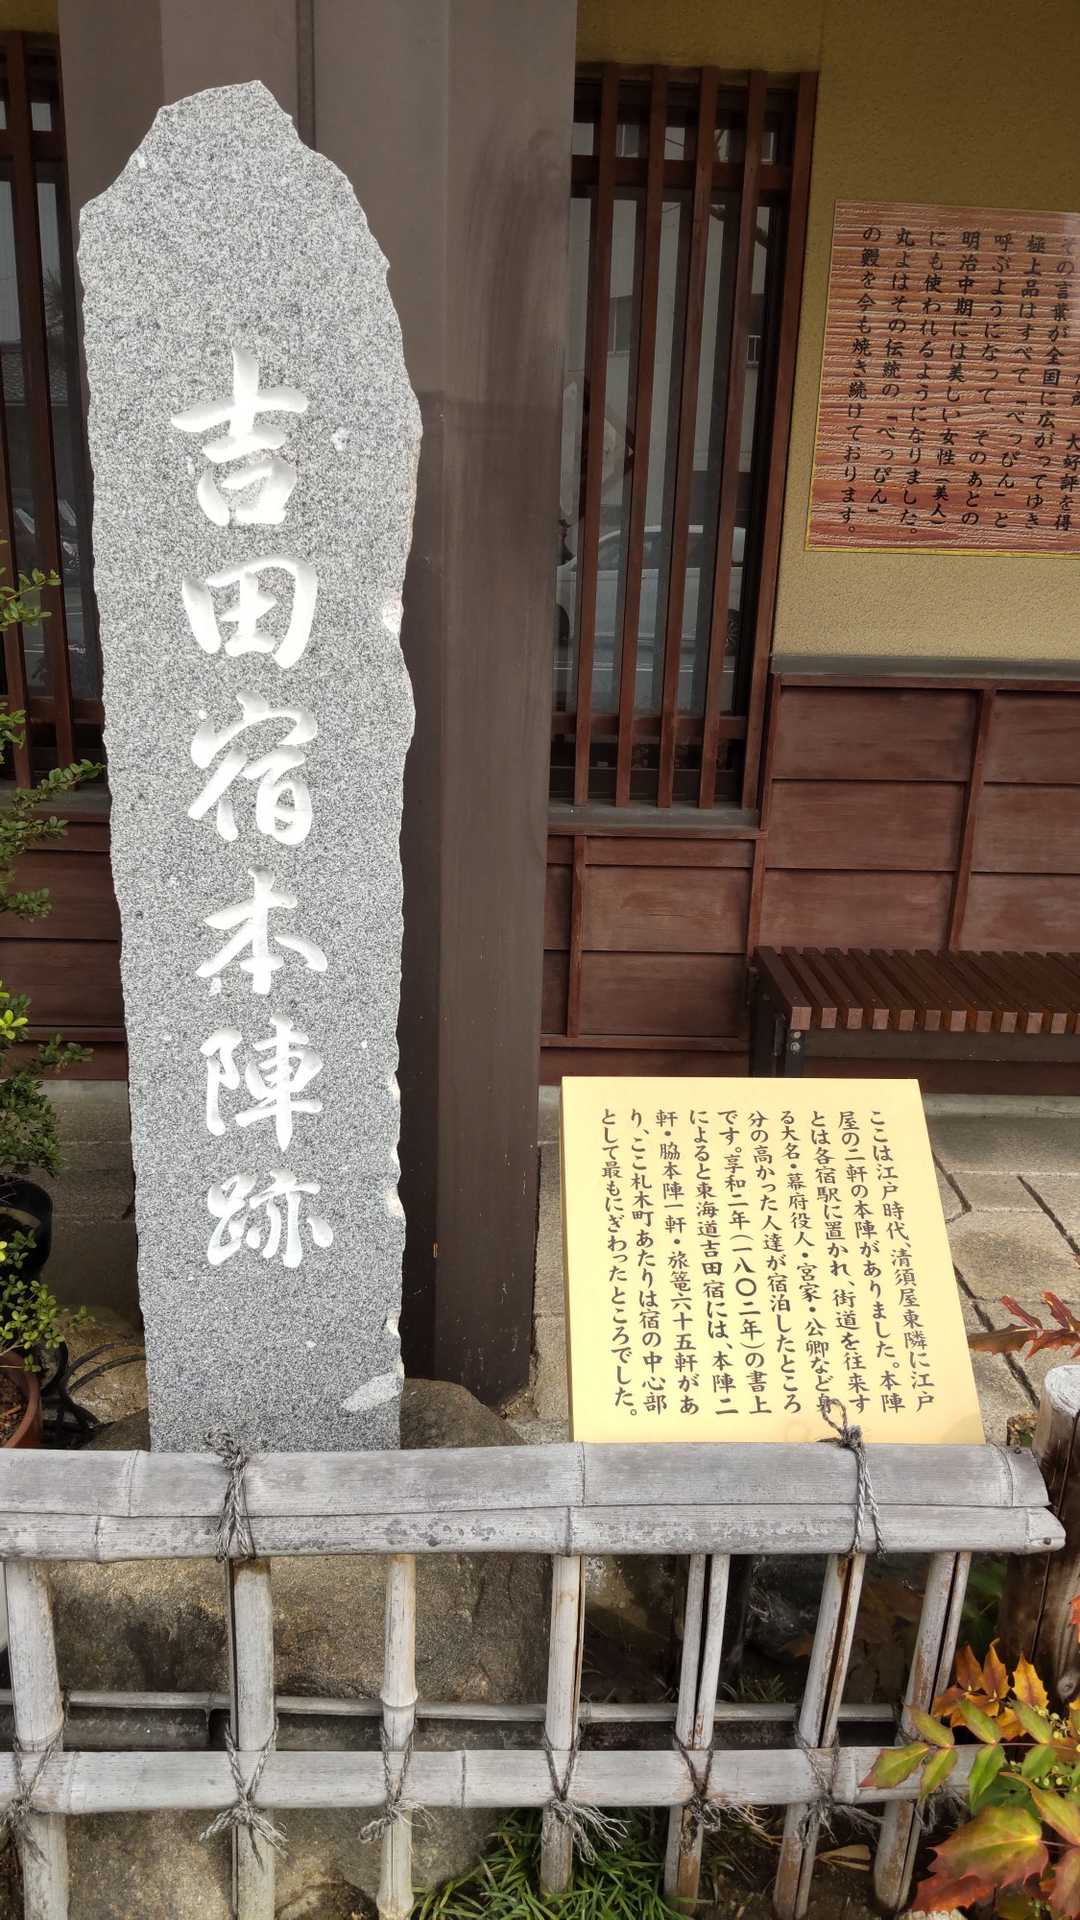 吉田宿本陣跡
ここは江戸時代、清須屋東隣に江戸
屋の二軒の本陣がありました。本陣
とは各宿駅に置かれ、街道を往来す
る大名・幕府役人・宮家・公卿など身
分の高かった人達が宿泊したところ
です。享和二年(一八〇二年)の書上
によると東海道吉田宿には、本陣二
軒・脇本陣一軒・旅篭六十五軒があ
り、ここ札木町あたりは宿の中心部
として最もにぎわったところでした。
大好評を得
その言葉が全国に広がってゆき
極上品はすべて「べっぴん」と
呼ぶようになって、そのあとの
明治中期には美しい女性(美人)
にも使われるようになりました。
丸よはその伝統の「べっぴん」
の鰻を今も焼き続けております。